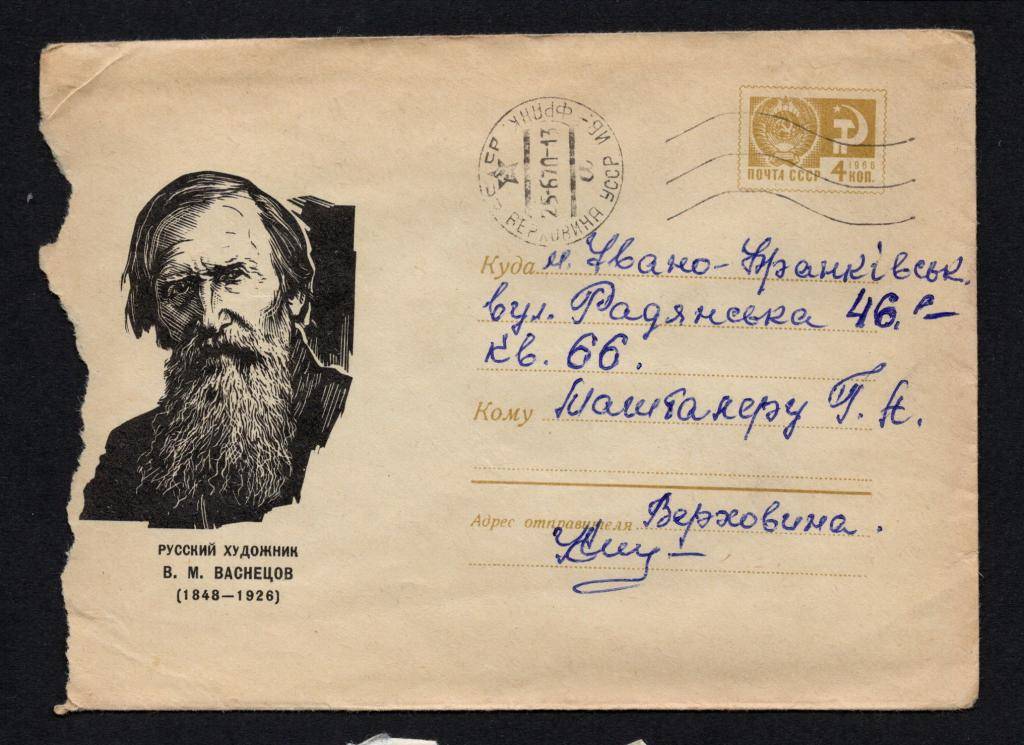 ИВ.-ФРАНК.
СССР
25-670-13
ВЕРХОВИНА УССР
1966
ПОЧТА СССР 4 КОП.
Куда м. Івано-Франківськ.
вул. Радянська 46.
кв. 66.
Кому Машталеру Г. А.
Адрес отправителя Верховина.
РУССКИЙ ХУДОЖНИК
В. М. ВАСНЕЦОВ
(1848—1926)